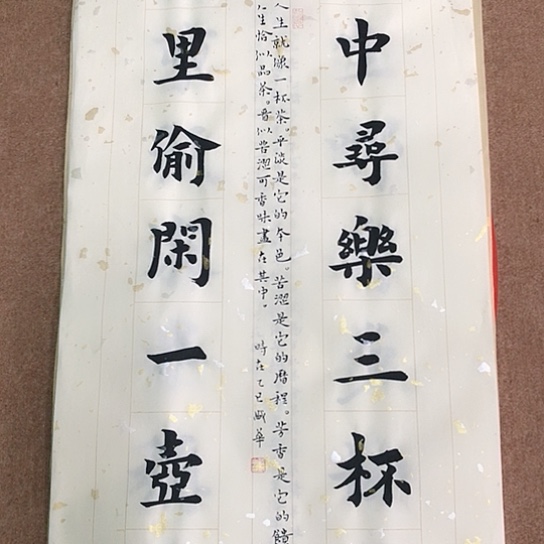 中尋樂三杯
人生就像一杯茶。平淡是它的本色。苦澀是它的曆程。芳香是它的饋
生恰似品茶。看似苦澀可香味盡在其中。 時在乙巳 華
里偷閑一壺